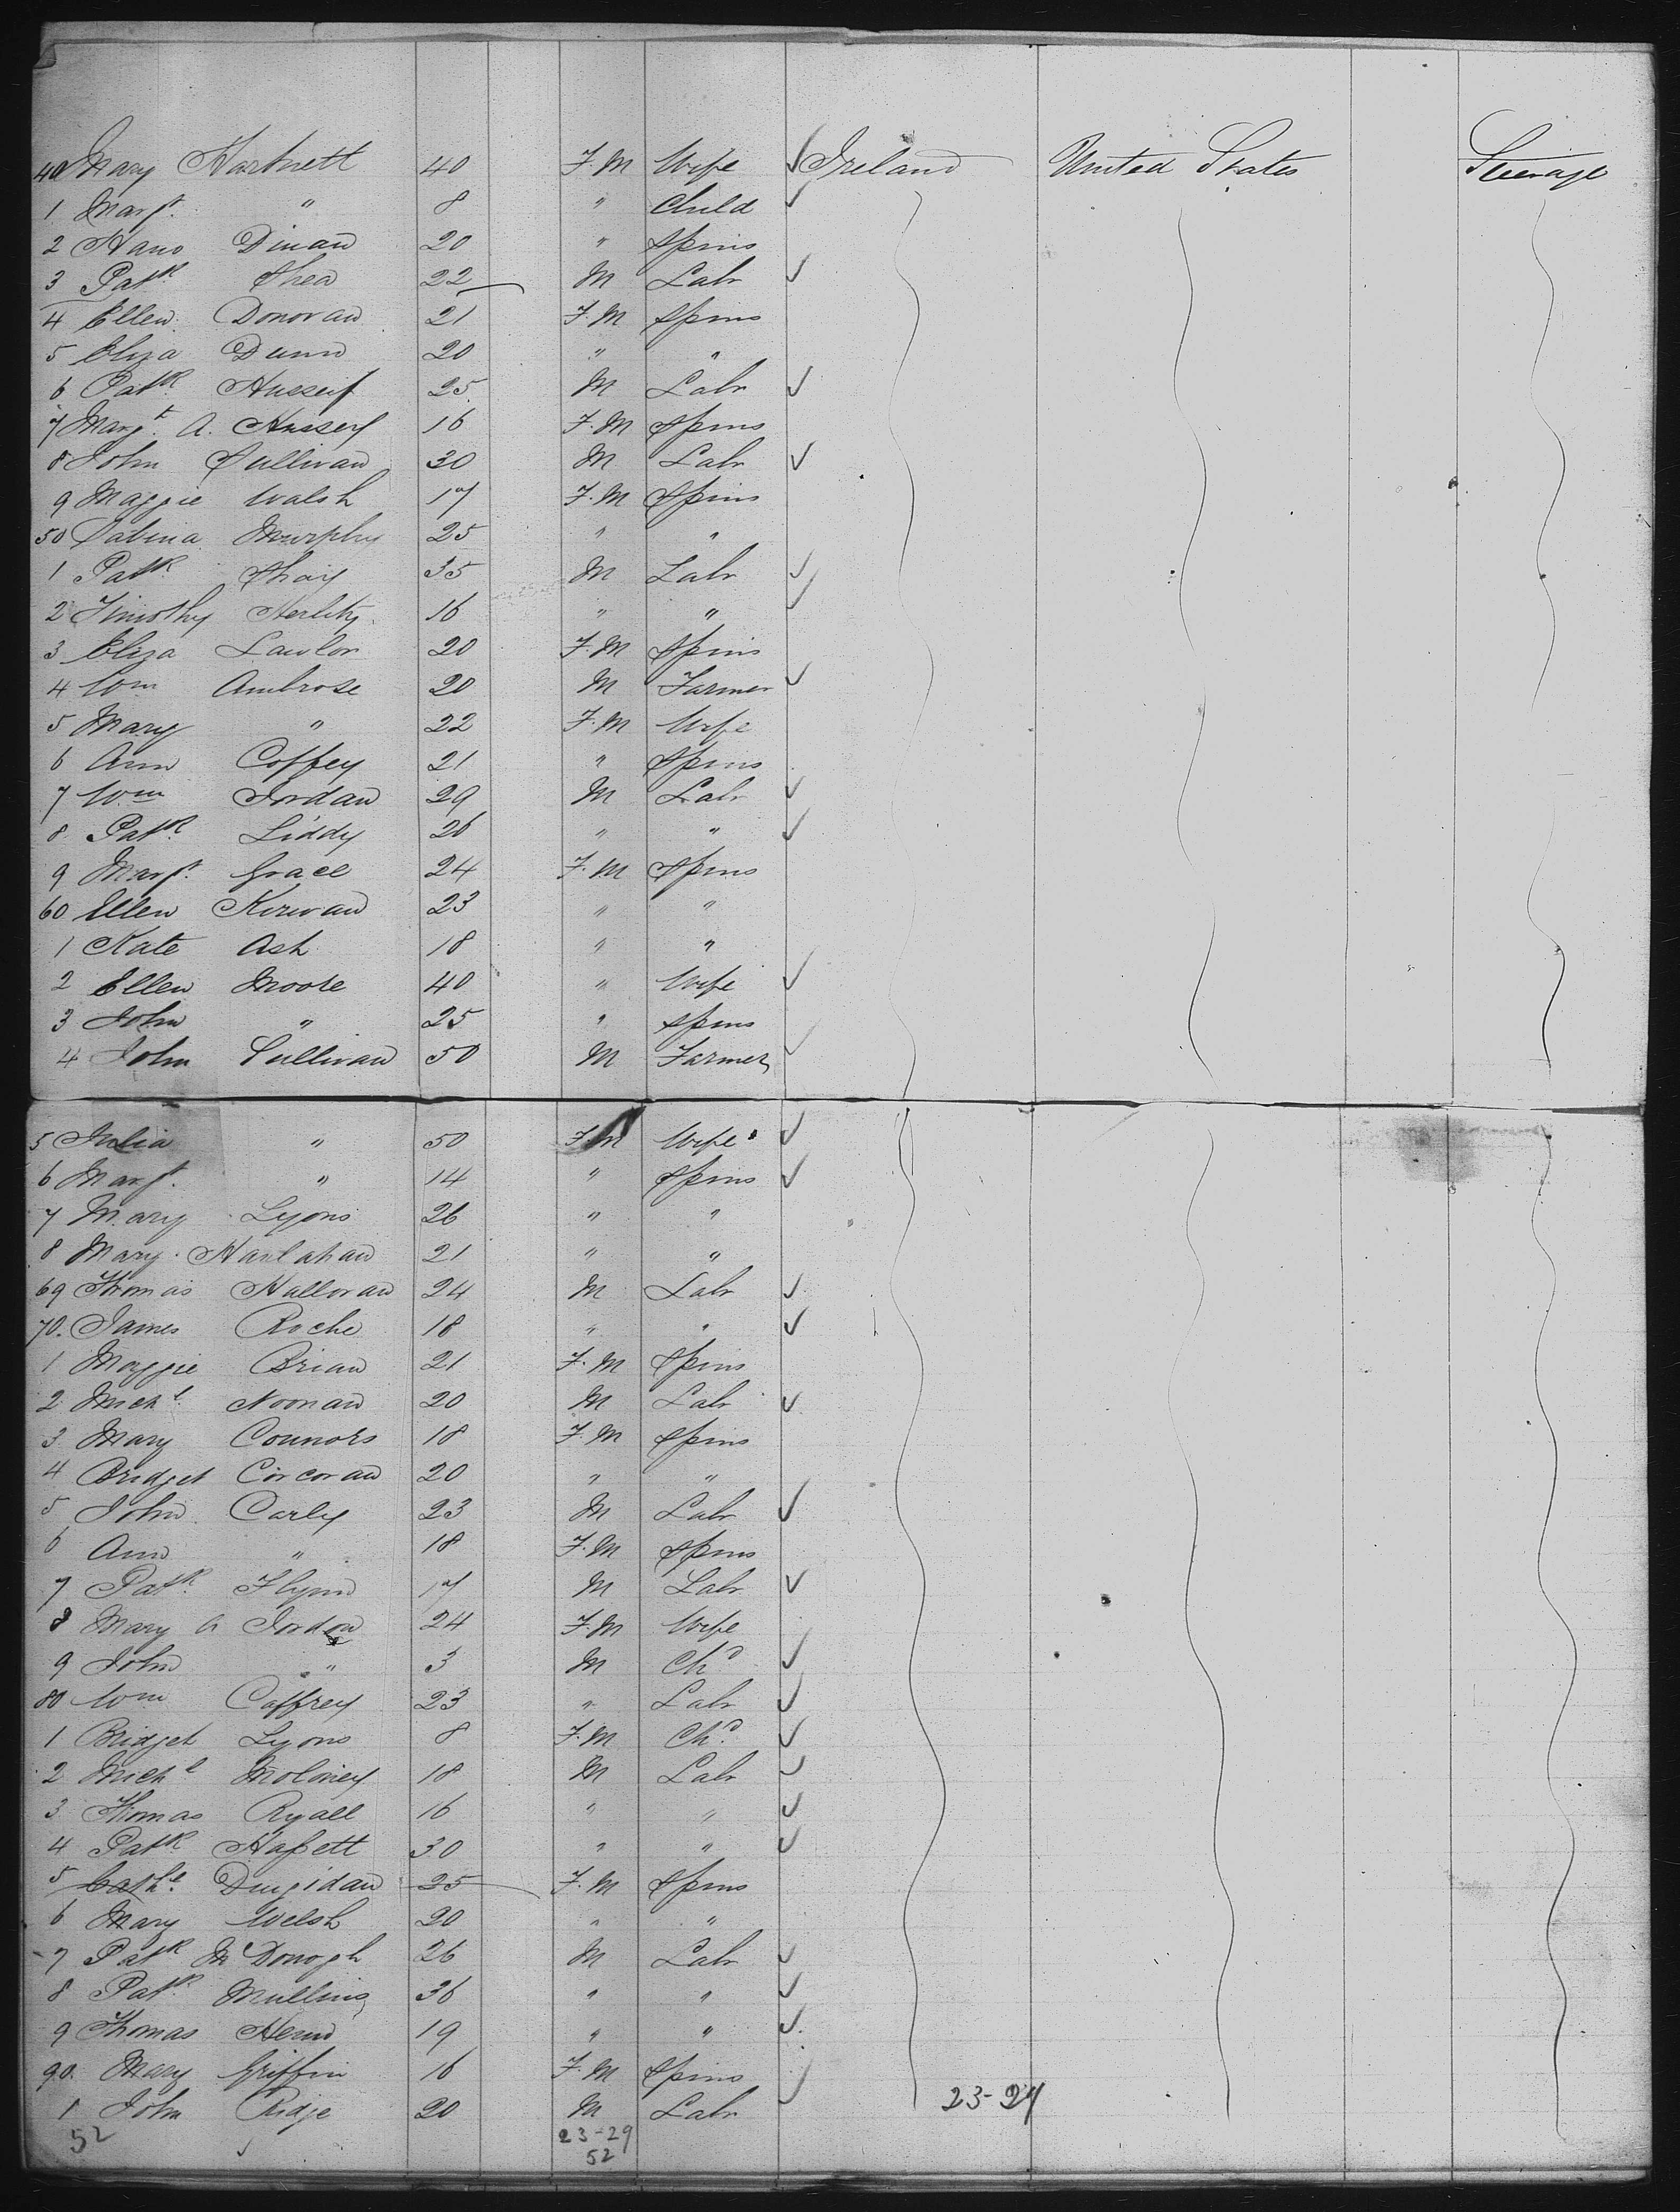 40 Mary Hartnett 40 F.M Wife ✓ Ireland United States Steerage
1 Margt. " 8 " Child ✓
2 Hano Dinan 20 " Spins
3 Patk. Shea 22 M Labr ✓
4 Ellen Donovan 21 F.M Spins
5 Eliza Dunn 20 " "
6 Patk. Hussey 25 M Labr ✓
7 Margt. A. Hussey 16 F.M Spins
8 John Sullivan 30 M Labr ✓
9 Maggie Walsh 17 F.M Spins
50 Sabina Murphy 25 " "
1 Patk. Shay 35 M Labr ✓
2 Timothy Herlihy 16 " " ✓
3 Eliza Lawlor 20 F.M Spins
4 Wm Ambrose 20 M Farmer ✓
5 Mary " 22 F.M Wife
6 Ann Coffey 21 " Spins
7 Wm Jordan 29 M Labr ✓
8 Patk. Liddy 26 " " ✓
9 Margt. Grace 24 F.M Spins
60 Ellen Kirwan 23 " "
1 Kate Ash 18 " "
2 Ellen Moore 40 " Wife ✓
3 John " 25 " Spins
4 John Sullivan 50 M Farmer ✓
5 Julia " 50 F.M Wife ✓
6 Margt. " 14 " Spins ✓
7 Mary Lyons 26 " "
8 Mary Hanlahan 21 " "
69 Thomas Halloran 24 M Labr ✓
70. James Roche 18 " " ✓
1 Maggie Brian 21 F.M Spins
2 Michl Noonan 20 M Labr ✓
3 Mary Connors 18 F.M Spins
4 Bridget Corcoran 20 " "
5 John Carley 23 M Labr ✓
6 Ann " 18 F.M Spins
7 Patk. Flynn 17 M Labr ✓
8 Mary A Jordan 24 F.M Wife
9 John " 3 M Chd ✓
80 Wm Caffrey 23 " Labr ✓
1 Bridget Lyons 8 F.M Chd. ✓
2 Michl Moloney 18 M Labr ✓
3 Thomas Ryall 16 " " ✓
4 Patk Hassett 30 " " ✓
5 Cathe. Duigidan 25 F.M Spins
6 Mary Welsh 20 " "
7 Patk McDonogh 26 M Labr ✓
8 Patk. Mullins 36 " " ✓
9 Thomas Hern 19 " " ✓
90. Mary Griffin 16 F.M Spins
1 John Ridge 20 M Labr ✓ 23-29
52 ✓ 23-29
52